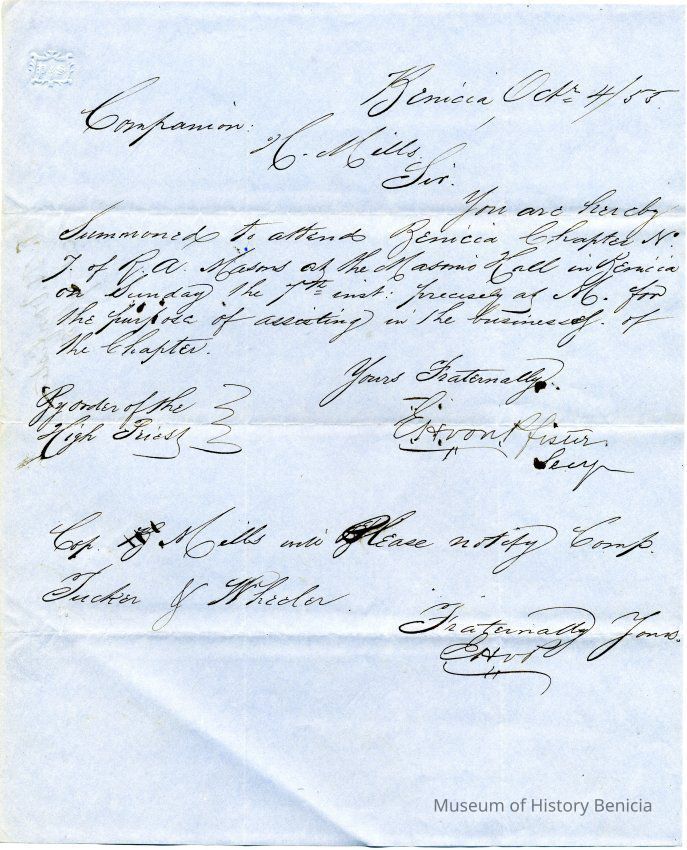 Benicia, Oct. 4/55.
Companion:
H. Mills.
Sir.
You are hereby
Summoned to attend Benicia Chapter No
7. of R. A. Masons at the Masonic Hall in Benicia
on Sunday the 7th inst: precisely at M. for
the purpose of assisting in the business of
the Chapter.
Yours Fraternally.
By order of the
High Priest
E. H. von Pfister.
Secy
Cop. Mills will Please notify Comp.
Tucker & Wheeler.
Fraternally Yours.
EHvP
Museum of History Benicia